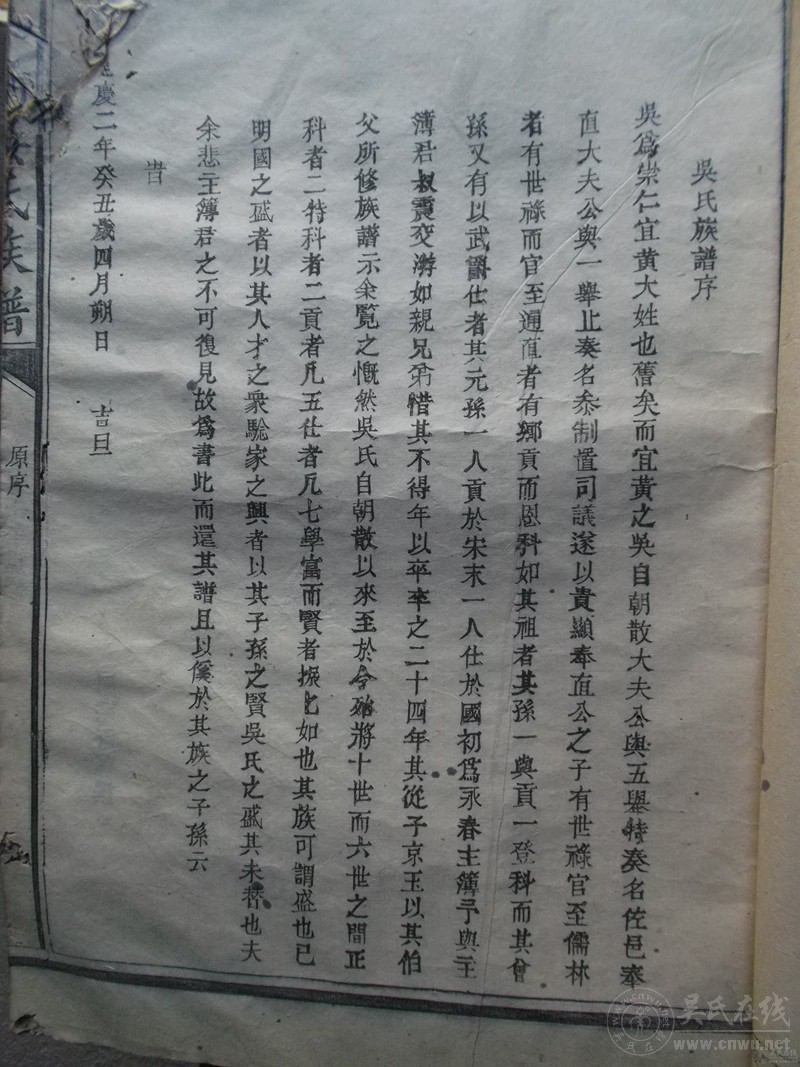 吳氏族譜序
吳爲崇仁宜黃大姓也舊矣而宜黃之吳自朝散大夫公與五舉特奏名佐邑奉
直大夫公與一舉止奏名叅制置司議遂以貴顯奉直公之子有世祿官至儒林
者有世祿而官至通直者有鄉貢而恩科如其祖者其孫一與貢一登科而其曾
孫又有以武爵仕者其元孫一人貢於宋末一人仕於國初爲永春主簿予與主
簿君叔震交游如親兄弟惜其不得年以卒卒之二十四年其從子京玉以其伯
父所修族譜示余覽之慨然吳氏自朝散以來至於今殆將十世而六世之間正
科者二特科者二貢者凡五仕者凡七學富而賢者振匕如也其族可謂盛也已
明國之盛者以其人才之衆騐家之興者以其子孫之賢吳氏之盛其未替也夫
余悲主簿君之不可復見故爲書此而還其譜且以僃於其族之子孫云
旹
慶二年癸丑歲四月朔日 吉旦
氏族譜
原序
吳氏在线
www.cnwu.net